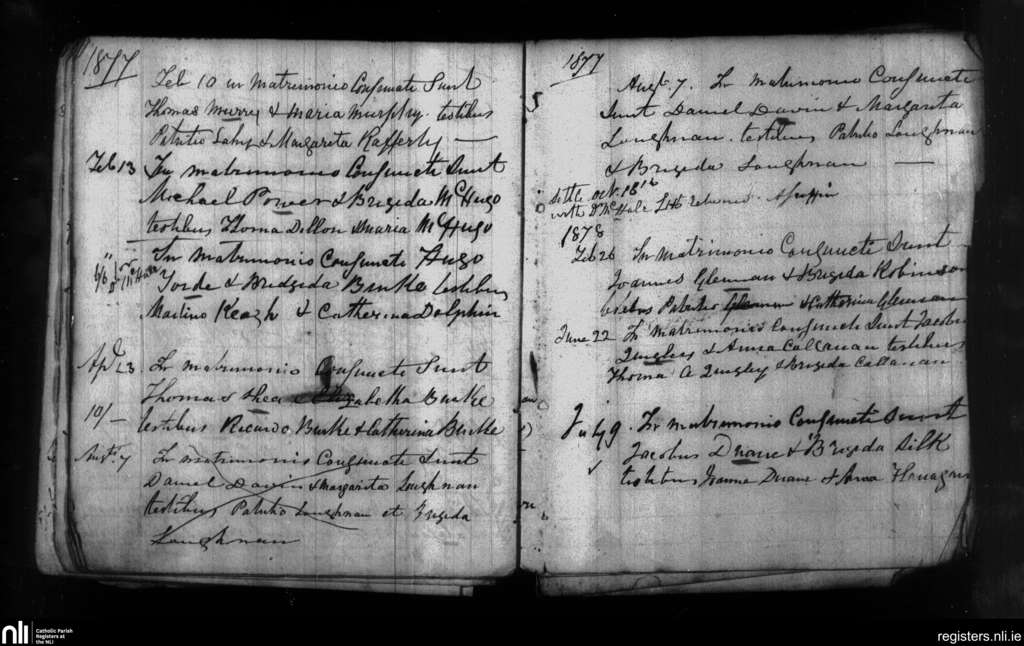 1877
Feb 10 in Matrimonio Conjuncte Sunt
Thomas Murry & Maria Murphy. testibus
Patritio Lahy & Margarita Rafferty —
Feb 13 In matrimonio Conjuncte Sunt
Michael Power & Brigida McHugo
testibus Thoma Dillon & Maria McHugo
In matrimonio Conjuncte Hugo
Forde & Bridgida Burke testibus
Martino Keogh & Catherina Dolphin
Apl 23 In matrimonio Conjuncte Sunt
Thomas Shea & Elizabetha Burke
10/– testibus Ricardo Burke & Catherina Burke
Augt. 7 In matrimonio Conjuncte Sunt
Daniel Davin & Margarita Loughnan
testibus Patritio Loughnan et Brigida
Loughnan
1877
Augt 7. In matrimonio Conjuncte
Sunt Daniel Davin & Margarita
Loughnan. testibus Patritio Loughnan
& Brigida Loughnan —
Settle Oct. 18
with Dr McHale
1878
Feb 26 In Matrimonio Conjuncti Sunt
Joannes Glennan & Brigida Robinson
testibus Patritio Glennan & Catherina Glennan
June 22 In Matrimonio Conjuncti Sunt Jacobus
Quigley & Anna Callanan testibus
Thoma A Quigley & Brigida Callanan
July 9. In matrimonio Conjuncte Sunt
Jacobus Duane & Brigida Silk
testibus Joanne Duane & Anna Flanagan
nli
Catholic Parish
Registers at
the NLI
registers.nli.ie